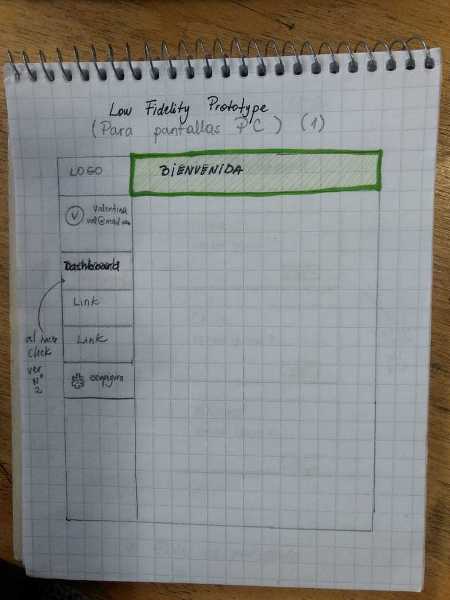 Low Fidelity Prototype
(Para pantallas PC) (1)
LOGO
BIENVENIDA
V
Valentina
Dashboard
Link
Link
al hacer
click
ver
N°
2